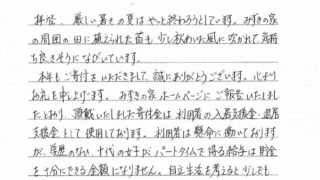 拝啓、厳しい暑さの夏はやっと終わろうとしています。みずきの家
の周囲の田に植えられた苗も少し秋めいた風に吹かれて気持
ち良さそうになびいています。
本年もご寄付をいただきまして、誠にありがとうございます。心より
お礼を申し上げます。みずきの家ホームページにご報告いたしまし
たとおり、頂戴いたしました寄付金は利用者の入居支援金・退居
支援金として使用しております。利用者は懸命に働いております
が、学歴のない、十代の女子がパートタイムで得る給与は貯金
を十分にできる金額になりません。自立生活を考えると少しでも